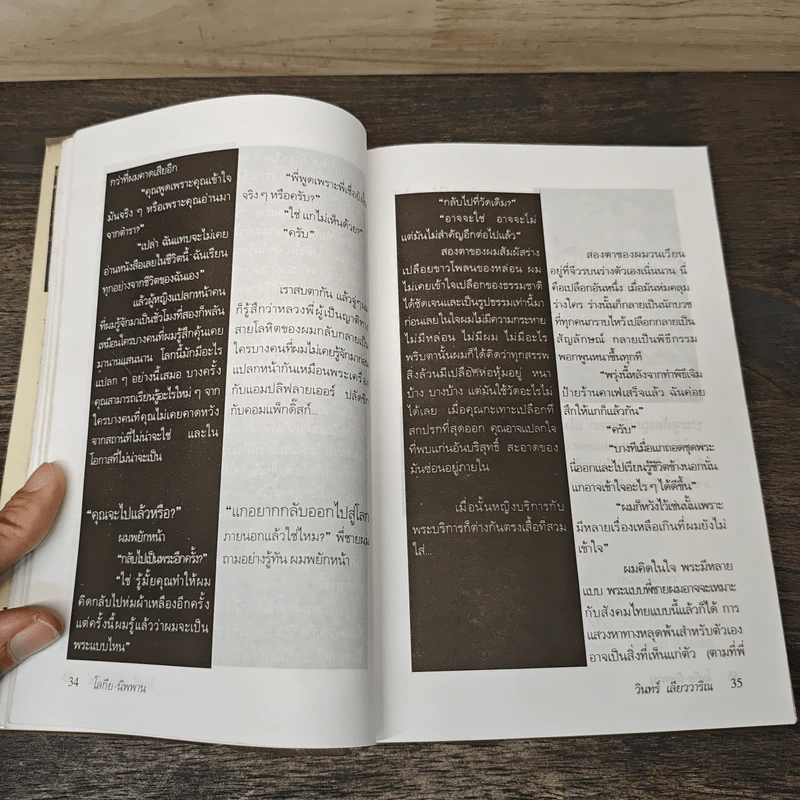 กว่าที่ผมคาดเสียอีก
“คุณพูดเพราะคุณเข้าใจ
มันจริง ๆ หรือเพราะคุณอ่านมา
จากตำรา?”
“เปล่า ฉันแทบจะไม่เคย
อ่านหนังสือเลยในชีวิตนี้ ฉันเรียน
ทุกอย่างจากชีวิตของฉันเอง”
แล้วผู้หญิงแปลกหน้าคน
ที่ผมรู้จักมาเป็นชั่วโมงที่สองก็พลัน
เหมือนใครบางคนที่ผมรู้สึกคุ้นเคย
มานานแสนนาน โลกนี้มักมีอะไร
แปลก ๆ อย่างนี้เสมอ บางครั้ง
คุณสามารถเรียนรู้อะไรใหม่ ๆ จาก
ใครบางคนที่คุณไม่เคยคาดหวัง
จากสถานที่ไม่น่าจะใช่ และใน
โอกาสที่ไม่น่าจะเป็น
“คุณจะไปแล้วหรือ?”
ผมพยักหน้า
“กลับไปเป็นพระอีกครั้ง?”
“ใช่ รู้มั้ยคุณทำให้ผม
คิดกลับไปห่มผ้าเหลืองอีกครั้ง
แต่ครั้งนี้ผมรู้แล้วว่าผมจะเป็น
พระแบบไหน”
“พี่พูดเพราะพี่เชื่อยังงั้น
จริง ๆ หรือครับ?”
“ใช่ แกไม่เห็นด้วย?”
“ครับ”
เราสบตากัน แล้วจู่ๆ ผม
ก็รู้สึกว่าหลวงพี่ผู้เป็นญาติทาง
สายโลหิตของผมกลับกลายเป็น
ใครบางคนที่ผมไม่เคยรู้จักมาก่อน
แปลกหน้ากันเหมือนพระเครื่อง
กับแอมปลิฟลายเออร์ ปลัดขิก
กับคอมแพ็กดิ๊สก์...
“แกอยากกลับออกไปสู่โลก
ภายนอกแล้วใช่ไหม?” พี่ชายผม
ถามอย่างรู้ทัน ผมพยักหน้า
34 โลกีย-นิพพาน
“กลับไปที่วัดเดิม?”
“อาจจะใช่ อาจจะไม่
แต่มันไม่สำคัญอีกต่อไปแล้ว”
สองตาของผมสัมผัสร่าง
เปลือยขาวโพลนของหล่อน ผม
ไม่เคยเข้าใจเปลือกของธรรมชาติ
ได้ชัดเจนและเป็นรูปธรรมเท่านี้มา
ก่อนเลยในใจผมไม่มีความกระหาย
ไม่มีหล่อน ไม่มีผม ไม่มีอะไร
พริบตานั้นผมก็ได้คิดว่าทุกสรรพ
สิ่งล้วนมีเปลือกห่อหุ้มอยู่ หนา
บ้าง บางบ้าง แต่มันใช้วัดอะไรไม่
ได้เลย เมื่อคุณกะเทาะเปลือกที่
สกปรกที่สุดออก คุณอาจแปลกใจ
ที่พบแก่นอันบริสุทธิ์ สะอาดของ
มันซ่อนอยู่ภายใน
เมื่อนั้นหญิงบริการกับ
พระบริการก็ต่างกันตรงเสื้อที่สวม
ใส่...
สองตาของผมวนเวียน
อยู่ที่จีวรบนร่างตัวเองเนิ่นนาน นี่
คือเปลือกอันหนึ่ง เมื่อมันห่มคลุม
ร่างใคร ร่างนั้นก็กลายเป็นนักบวช
ที่ทุกคนกราบไหว้ เปลือกกลายเป็น
สัญลักษณ์ กลายเป็นพิธีกรรม
พอกพูนหนาขึ้นทุกที
“พรุ่งนี้หลังจากทำพิธีเจิม
ป้ายร้านคาเฟ่เสร็จแล้ว ฉันค่อย
สึกให้แกก็แล้วกัน”
“ครับ”
“บางทีเมื่อแกถอดชุดพระ
นี่ออกและไปเรียนรู้ชีวิตข้างนอกนั้น
แกอาจเข้าใจอะไร ๆ ได้ดีขึ้น”
“ผมก็หวังไว้เช่นนั้นเพราะ
มีหลายเรื่องเหลือเกินที่ผมยังไม่
เข้าใจ”
ผมคิดในใจ พระมีหลาย
แบบ พระแบบพี่ชายผมอาจจะเหมาะ
กับสังคมไทยแบบนี้แล้วก็ได้ การ
แสวงหาทางหลุดพ้นสำหรับตัวเอง
อาจเป็นสิ่งที่เห็นแก่ตัว (ตามที่พี่
วินทร์ เลียววาริณ 35